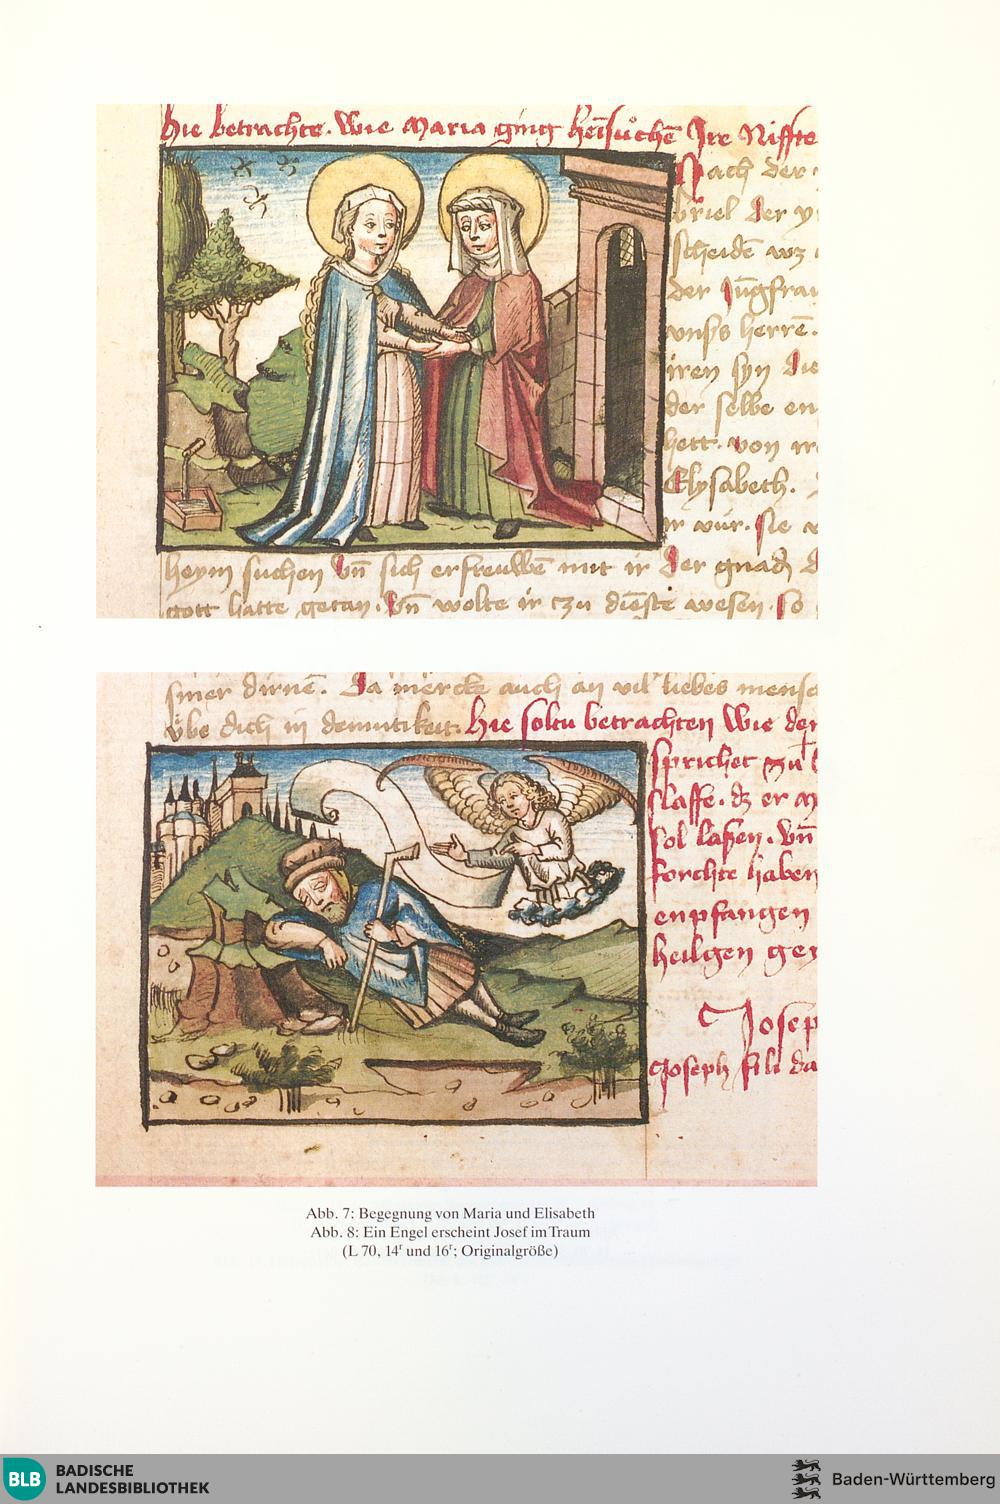 Hie betrachte. Wie Maria ging heīsuͦchē Ire Niffte
Nach der
briel der
scheidē wz
der Jūgfrau
vnßs herrē.
iren syn die
der selbe en
hett. von
Elysabeth.
ir wūr. sie
heym suchen Vn̄ sich erfreuwē mit ir der gnad
gott hatte getan. Vn̄ wolte ir czu dieste wesen. so
siner dirnē. Da mercke auch an vil liebes mensc
übe dich in demutikeit. Hie soltu betrachten Wie der
sprichet zu
slaffe. dz er
sol laßen. Vn̄
forchte haben
enpfangen
heiligen gey
Josep
Joseph fili da
Abb. 7: Begegnung von Maria und Elisabeth
Abb. 8: Ein Engel erscheint Josef im Traum
(L 70, 14r und 16r; Originalgröße)
BLB BADISCHE
LANDESBIBLIOTHEK
Baden-Württemberg